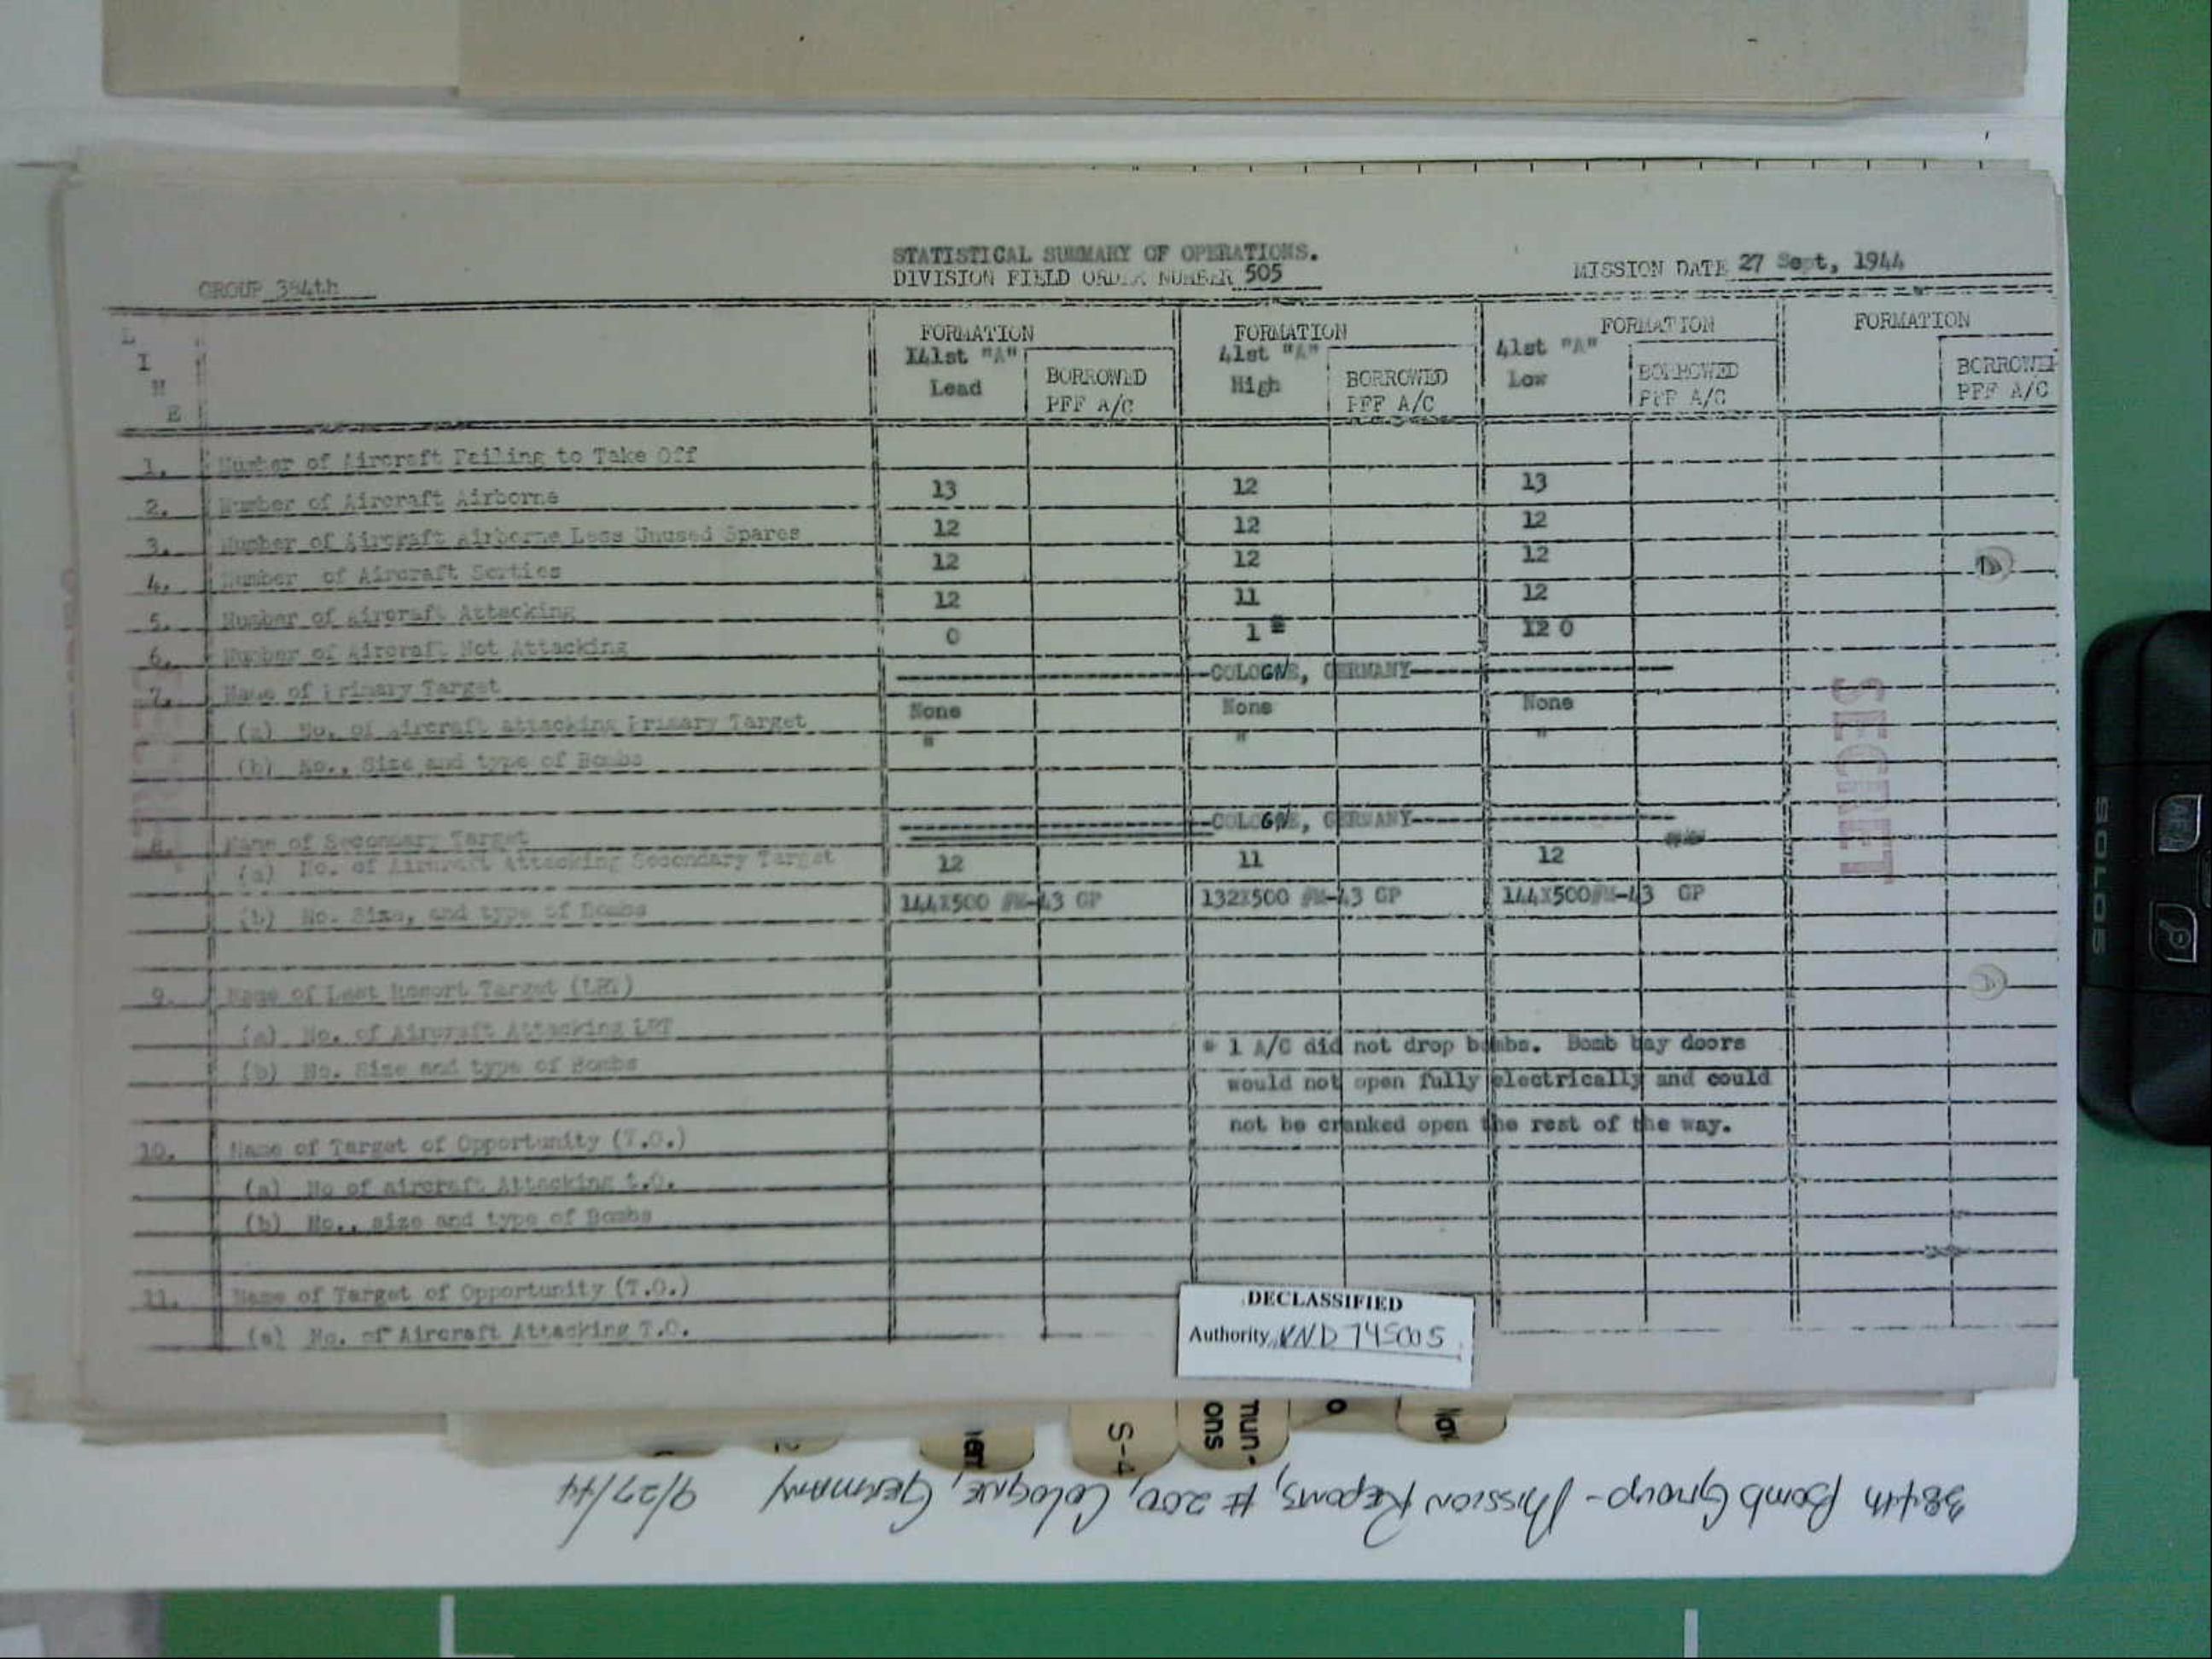 STATISTICAL SUMMARY OF OPERATIONS.
GROUP 384th DIVISION FIELD ORDER NUMBER 505 MISSION DATE 27 Sept, 1944
L I N E
FORMATION FORMATION FORMATION FORMATION
41st "A" Lead BORROWED PFF A/C 41st "A" High BORROWED PFF A/C 41st "A" Low BORROWED PFF A/C BORROWED PFF A/C
1. Number of Aircraft Failing to Take Off
2. Number of Aircraft Airborne 13 12 13
3. Number of Aircraft Airborne Less Unused Spares 12 12 12
4. Number of Aircraft Sorties 12 12 12
5. Number of Aircraft Attacking 12 11 12
6. Number of Aircraft Not Attacking 0 1 * 12 0
7. Name of Primary Target COLOGNE, GERMANY
(a) No. of Aircraft attacking Primary Target None None None
(b) No., Size and type of Bombs " " "
8. Name of Secondary Target COLOGNE, GERMANY
(a) No. of Aircraft Attacking Secondary Target 12 11 12
(b) No. Size, and type of Bombs 144X500 #M-43 GP 132X500 #M-43 GP 144X500#M-43 GP
9. Name of Last Resort Target (LRT)
(a) No. of Aircraft Attacking LRT
(b) No. Size and type of Bombs
* 1 A/C did not drop bombs. Bomb bay doors
would not open fully electrically and could
not be cranked open the rest of the way.
10. Name of Target of Opportunity (T.O.)
(a) No of aircraft Attacking t.O.
(b) No., size and type of Bombs
11. Name of Target of Opportunity (T.O.)
(a) No. of Aircraft Attacking T.O.
SECRET
SECRET
DECLASSIFIED
Authority NND 745005
S-4
mun-
ons
384th Bomb Group - Mission Reports, # 200, Cologne, Germany 9/27/44
SOLO5